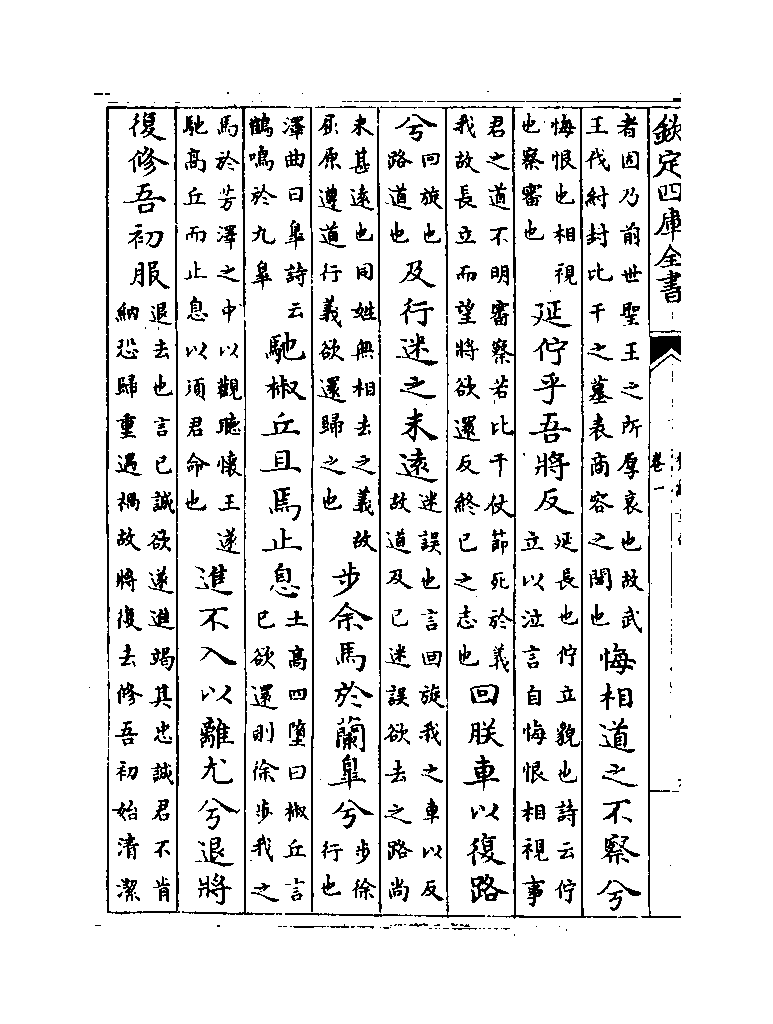 欽定四庫全書
卷一
者固乃前世聖王之所厚哀也故武王伐紂封比干之墓表商容之閭也悔相道之不察兮
悔恨也相視也察審也延佇乎吾將反延長也佇立貌也詩云佇立以泣言自悔恨相視事
君之道不明審察若比干仗節死於義我故長立而望將欲還反終己之志也回朕車以復路
兮回旋也路道也及行迷之未遠迷誤也言回旋我之車以反故道及己迷誤欲去之路尚
未甚遠也同姓無相去之義故屈原遵道行義欲還歸之也步余馬於蘭臯兮步徐行也
澤曲曰臯詩云鶴鳴於九臯馳椒丘且焉止息土高四墮曰椒丘言已欲還則徐步我之
馬於芳澤之中以觀聽懷王遂馳高丘而止息以須君命也進不入以離尤兮退將
復修吾初服退去也言已誠欲遂進竭其忠誠君不肯納恐歸重遇禍故將復去修吾初始清潔